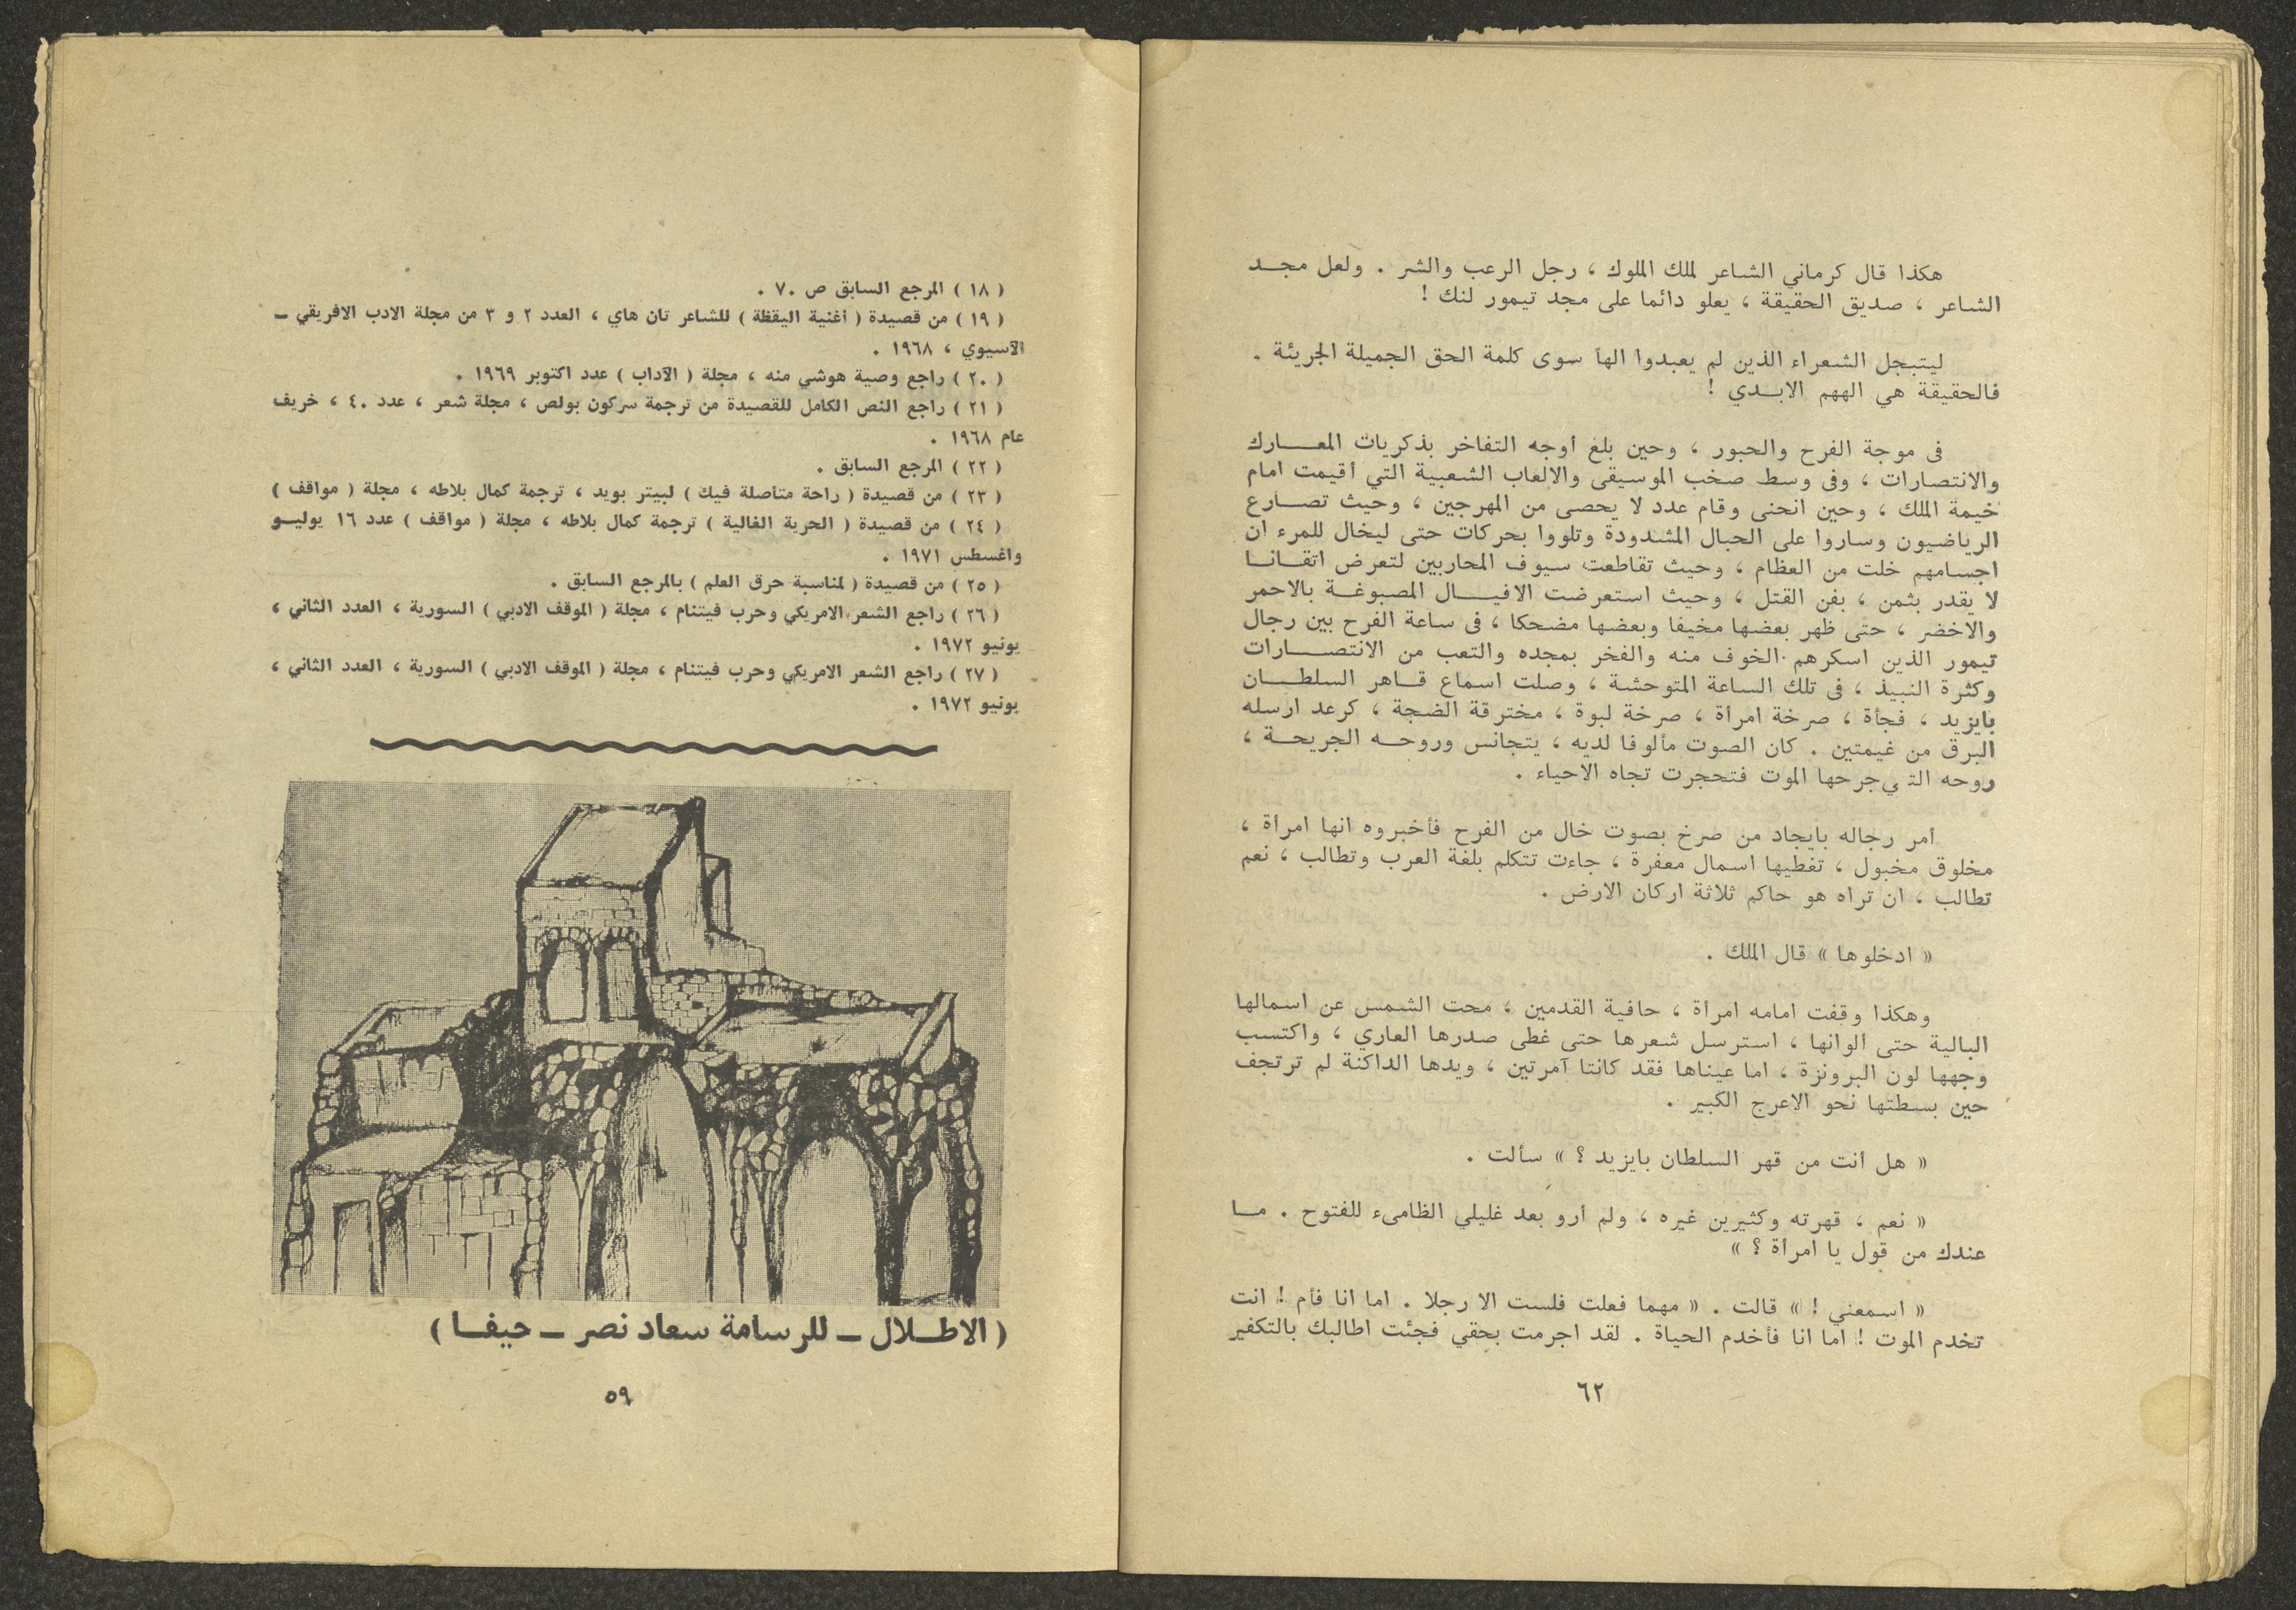 هكذا قال كرماني الشاعر لملك الملوك ، رجل الرعب والشر . ولعل مجـد
الشاعر ، صديق الحقيقة ، يعلو دائما على مجد تيمور لنك !
ليتبجل الشعراء الذين لم يعبدوا الهاً سوى كلمة الحق الجميلة الجريئة .
فالحقيقة هي الههم الابـدي !
فى موجة الفرح والحبور ، وحين بلغ أوجه التفاخر بذكريات المعـارك
والانتصارات ، وفى وسط صخب الموسيقى والالعاب الشعبية التي أقيمت امام
خيمة الملك ، وحين انحنى وقام عدد لا يحصى من المهرجين ، وحيث تصـارع
الرياضيون وساروا على الحبال المشدودة وتلووا بحركات حتى ليخال للمرء ان
اجسامهم خلت من العظام ، وحيث تقاطعت سيوف المحاربين لتعرض اتقـانـا
لا يقدر بثمن ، بفن القتل ، وحيث استعرضت الافيـال المصبوغـة بالاحمر
والاخضر ، حتى ظهر بعضها مخيفا وبعضها مضحكا ، فى ساعة الفرح بين رجال
تيمور الذين اسكرهم الخوف منه والفخر بمجده والتعب من الانتصـارات
وكثرة النبيذ ، فى تلك الساعة المتوحشة ، وصلت اسماع قـاهر السلطـان
بايزيد ، فجأة ، صرخة امرأة ، صرخة لبوة ، مخترقة الضجة ، كرعد ارسله
البرق من غيمتين . كان الصوت مألوفا لديه ، يتجانس وروحـه الجريحـة ،
روحه التي جرحها الموت فتحجرت تجاه الاحياء .
أمر رجاله بايجاد من صرخ بصوت خال من الفرح فأخبروه انها امرأة ،
مخلوق مخبول ، تغطيها اسمال معفرة ، جاءت تتكلم بلغة العرب وتطالب ، نعم
تطالب ، ان تراه هو حاكم ثلاثة اركان الارض .
« ادخلوها » قال الملك .
وهكذا وقفت امامه امرأة ، حافية القدمين ، محت الشمس عن اسمالها
البالية حتى ألوانها ، استرسل شعرها حتى غطى صدرها العاري ، واكتسب
وجهها لون البرونزة ، اما عيناها فقد كانتا آمرتين ، ويدها الداكنة لم ترتجف
حين بسطتها نحو الاعرج الكبير .
« هل أنت من قهر السلطان بايزيد ؟ » سألت .
« نعم ، قهرته وكثيرين غيره ، ولم أرو بعد غليلي الظامىء للفتوح . مـا
عندك من قول يا امرأة ؟ »
« اسمعني ! » قالت . « مهما فعلت فلست الا رجلا . اما انا فأم ! انت
تخدم الموت ! اما انا فأخدم الحياة . لقد اجرمت بحقي فجئت اطالبك بالتكفير
٦٢
( ١٨ ) المرجع السابق ص ٧٠ .
( ١٩ ) من قصيدة ( أغنية اليقظة ) للشاعر تان هاي ، العدد ٢ و ٣ من مجلة الادب الافريقي ـ
الآسيوي ، ١٩٦٨ .
( ٢٠ ) راجع وصية هوشي منه ، مجلة ( الآداب ) عدد اكتوبر ١٩٦٩ .
( ٢١ ) راجع النص الكامل للقصيدة من ترجمة سركون بولص ، مجلة شعر ، عدد ٤٠ ، خريف
عام ١٩٦٨ .
( ٢٢ ) المرجع السابق .
( ٢٣ ) من قصيدة ( راحة متأصلة فيك ) لبيتر بويد ، ترجمة كمال بلاطه ، مجلة ( مواقف )
( ٢٤ ) من قصيدة ( الحرية الغالية ) ترجمة كمال بلاطه ، مجلة ( مواقف ) عدد ١٦ يوليـو
واغسطس ١٩٧١ .
( ٢٥ ) من قصيدة ( لمناسبة حرق العلم ) بالمرجع السابق .
( ٢٦ ) راجع الشعر الامريكي وحرب فيتنام ، مجلة ( الموقف الادبي ) السورية ، العدد الثاني ،
يونيو ١٩٧٢ .
( ٢٧ ) راجع الشعر الامريكي وحرب فيتنام ، مجلة ( الموقف الادبي ) السورية ، العدد الثاني ،
يونيو ١٩٧٢ .
( الاطـلال ـ للرسامة سعاد نصر ـ حيفـا )
٥٩